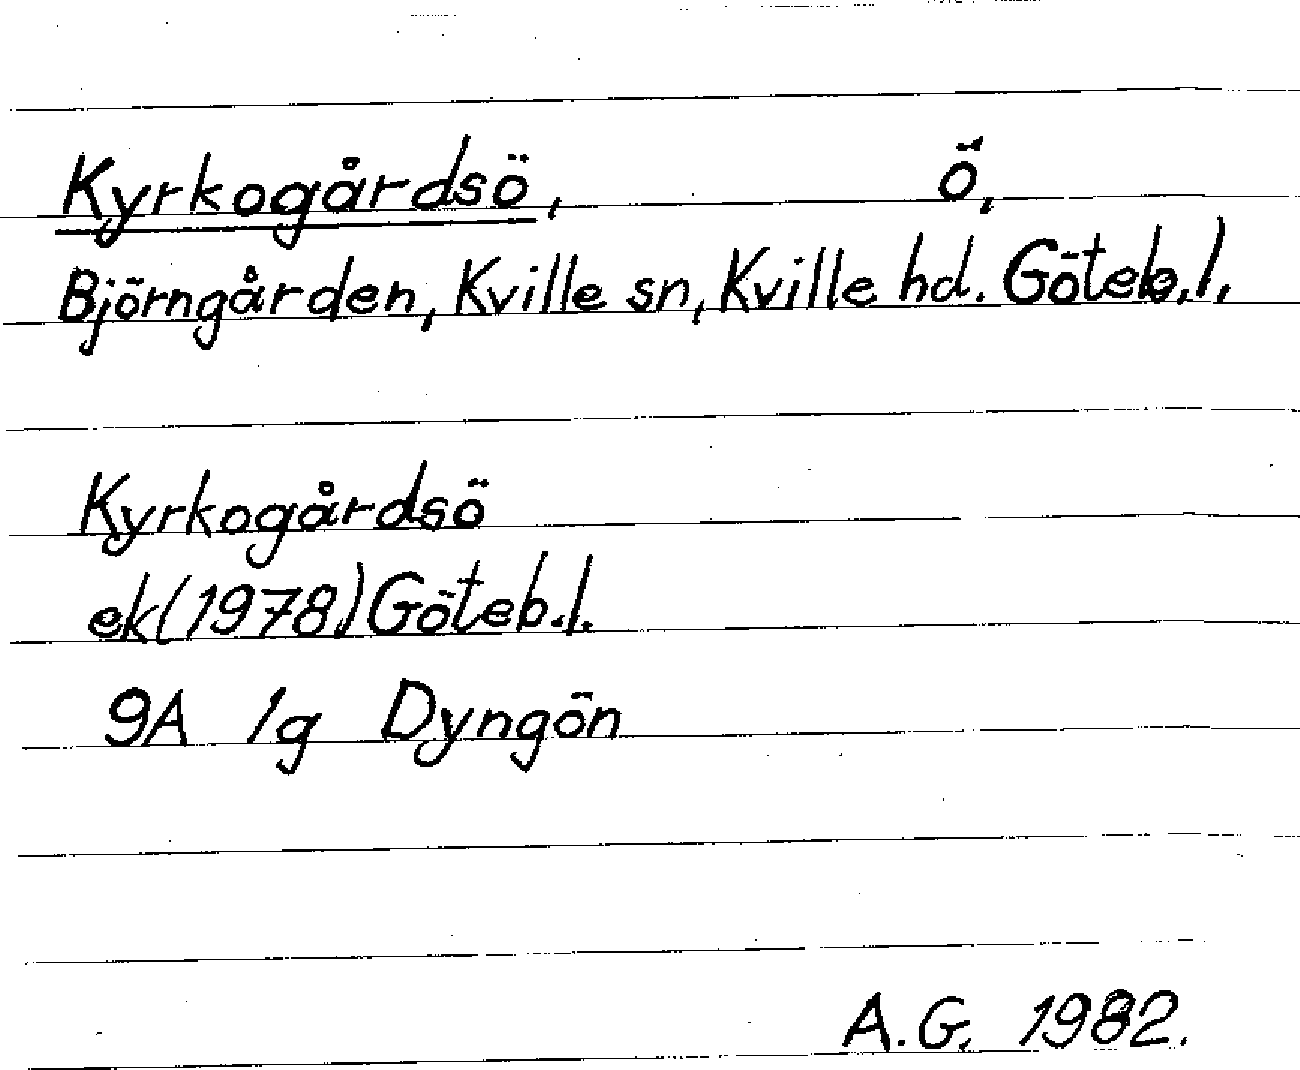 Kyrkogårdsö, ö,
Björngården, Kville sn, Kville hd. Göteb.l.
Kyrkogårdsö
ek(1978) Göteb.l.
9A 1g Dyngön
A.G. 1982.